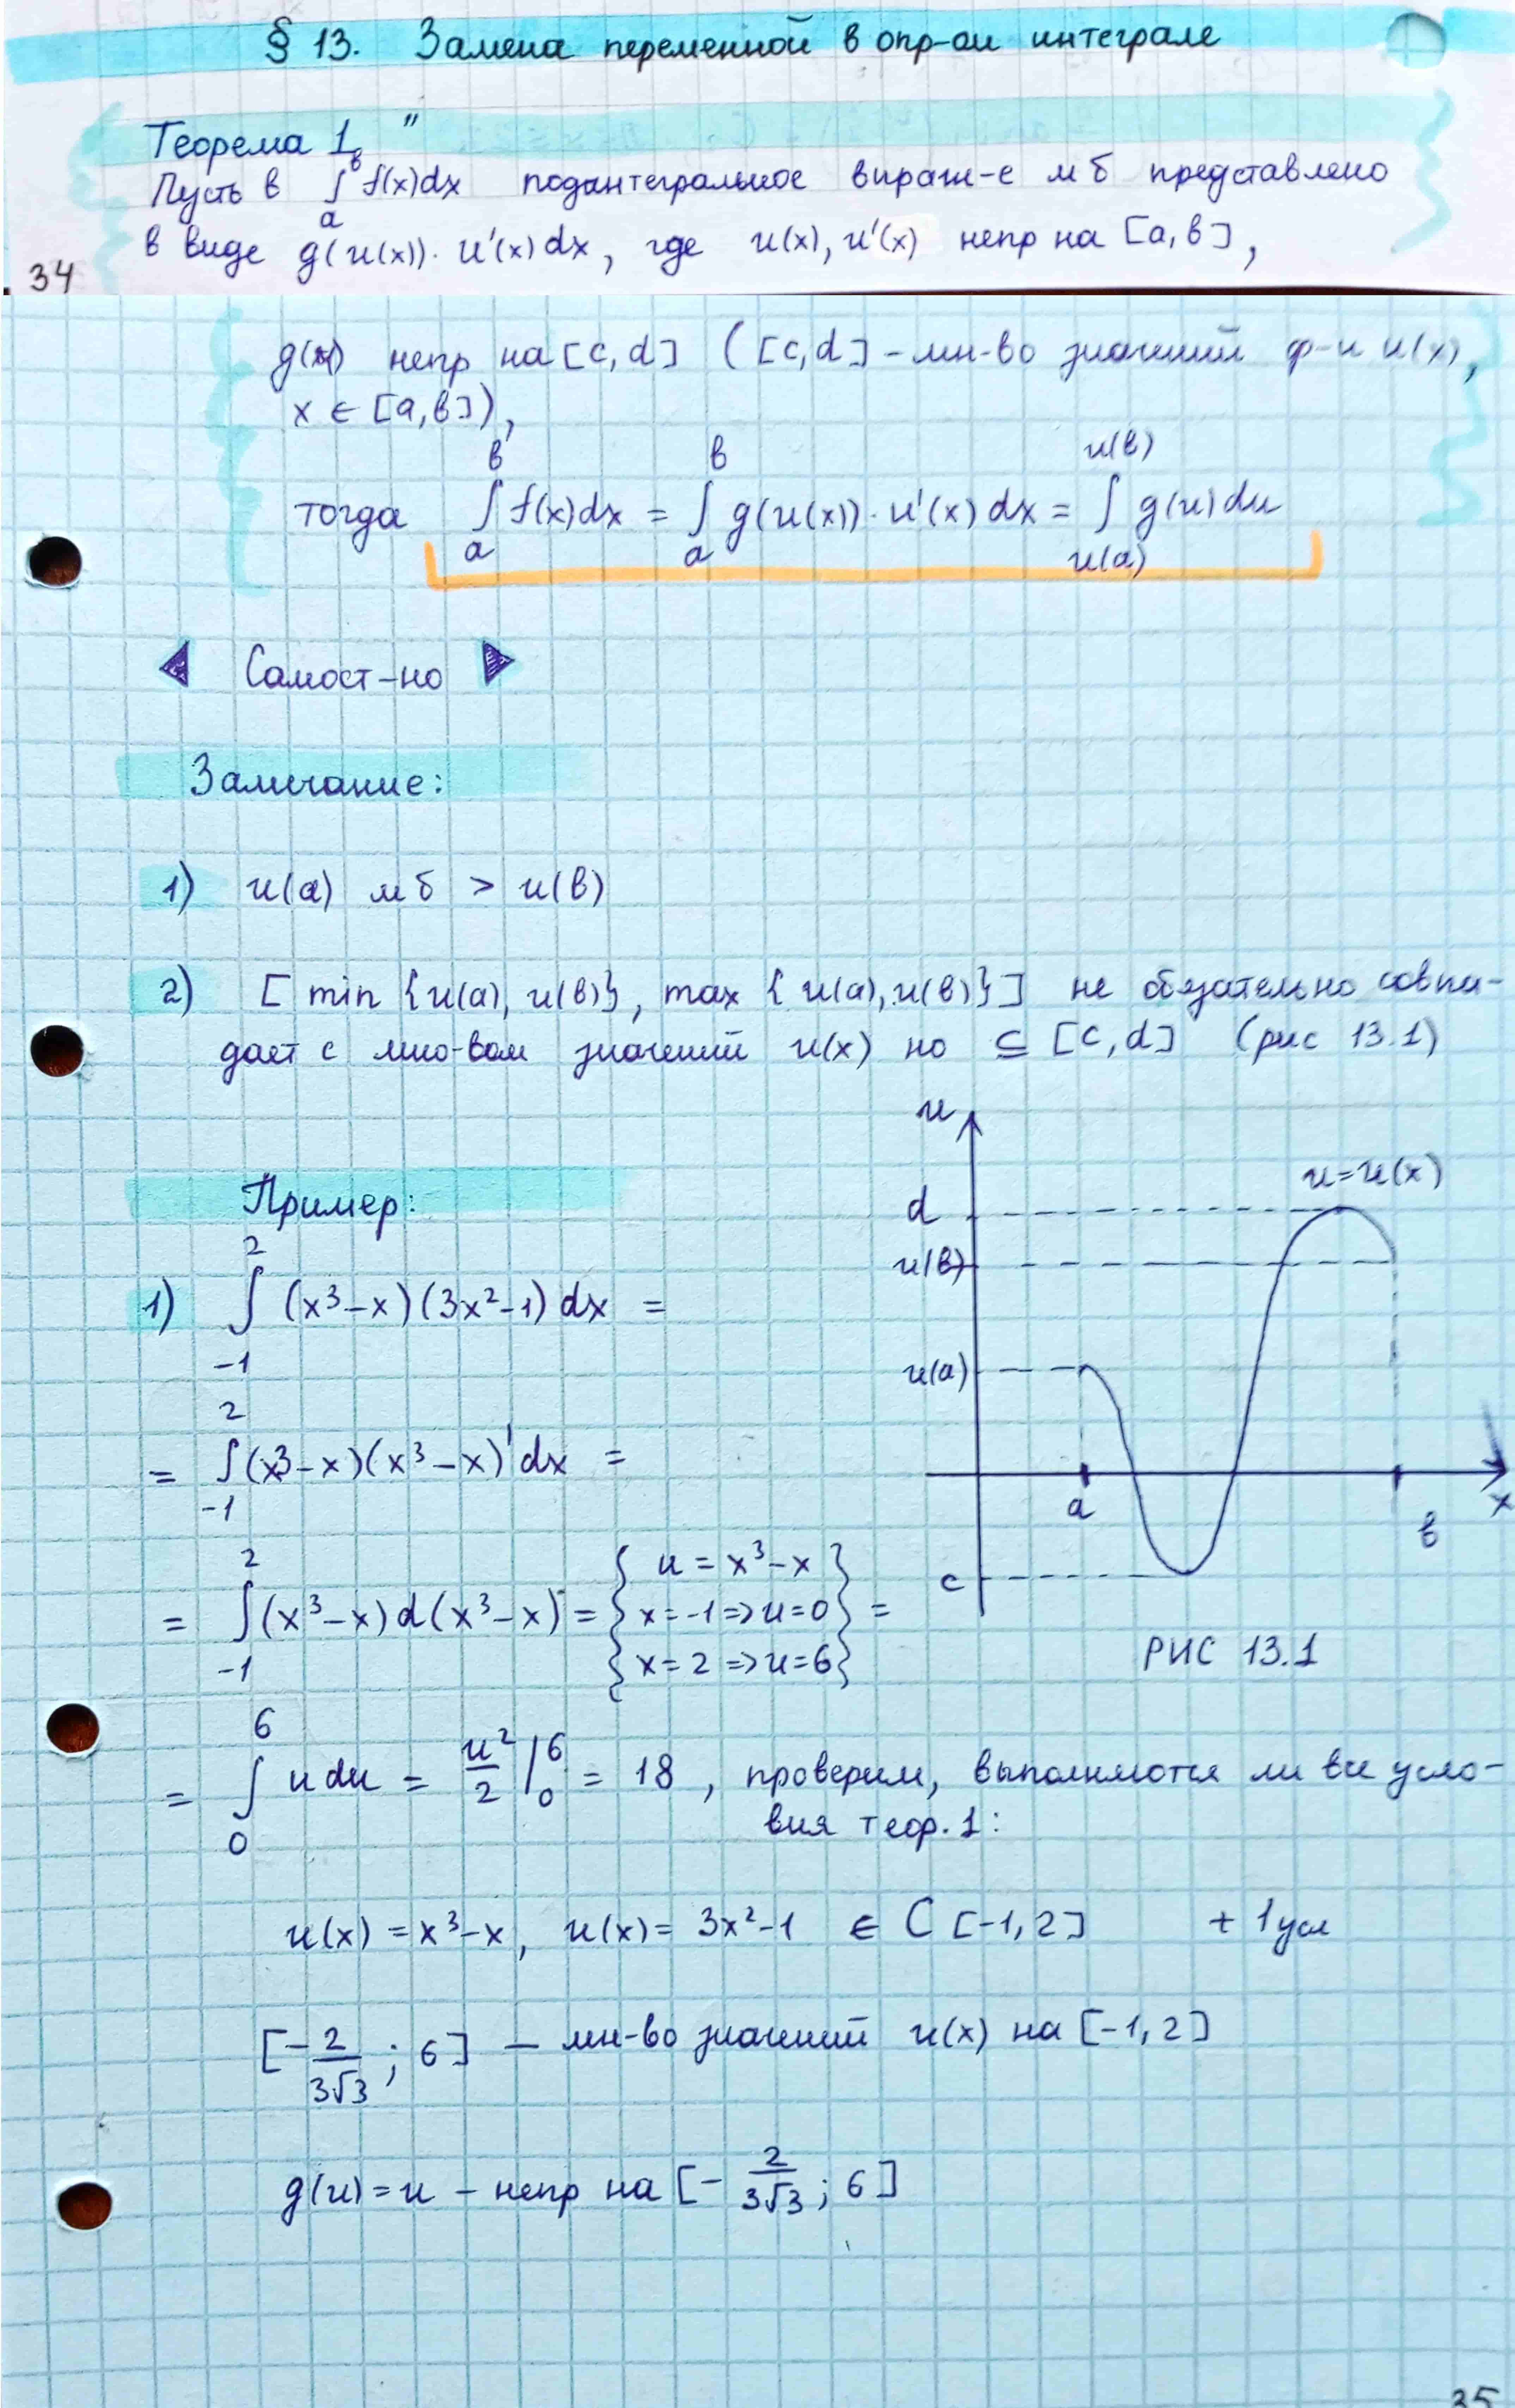 § 13. Замена переменной в опр-ом интеграле
Теорема 1
Пусть в ∫_a^b f(x)dx подинтегральное выраж-е м б представлено
в виде g(u(x))·u'(x)dx, где u(x), u'(x) непр на [a, b],
34
g(u) непр на [c, d] ([c, d] - мн-во значений ф-и u(x),
x ∈ [a, b]),
тогда ∫_a^b f(x)dx = ∫_a^b g(u(x))·u'(x)dx = ∫_{u(a)}^{u(b)} g(u)du
◀ Самост-но ▶
Замечание:
1) u(a) м б > u(b)
2) [min {u(a), u(b)}, max {u(a), u(b)}] не обязательно совпа-
дает с мно-вом значений u(x) но ⊆ [c, d] (рис 13.1)
Пример:
1) ∫_{-1}^2 (x³-x)(3x²-1)dx =
= ∫_{-1}^2 (x³-x)(x³-x)'dx =
= ∫_{-1}^2 (x³-x)d(x³-x) = { u = x³-x
x = -1 => u = 0
x = 2 => u = 6 } =
u
u = u(x)
d
u(b)
u(a)
a
b
x
c
РИС 13.1
= ∫_0^6 u du = u²/2 |_0^6 = 18, проверим, выполняются ли все усло-
вия теор. 1:
u(x) = x³-x, u(x) = 3x²-1 ∈ C [-1, 2] + 1 усл
[-2/(3√3); 6] — мн-во значений u(x) на [-1, 2]
g(u) = u - непр на [-2/(3√3); 6]
35